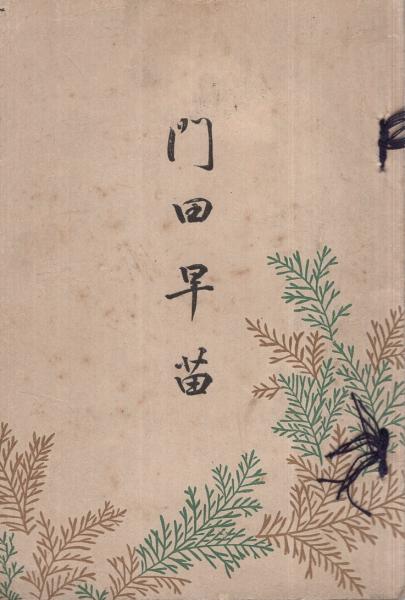 門田早苗